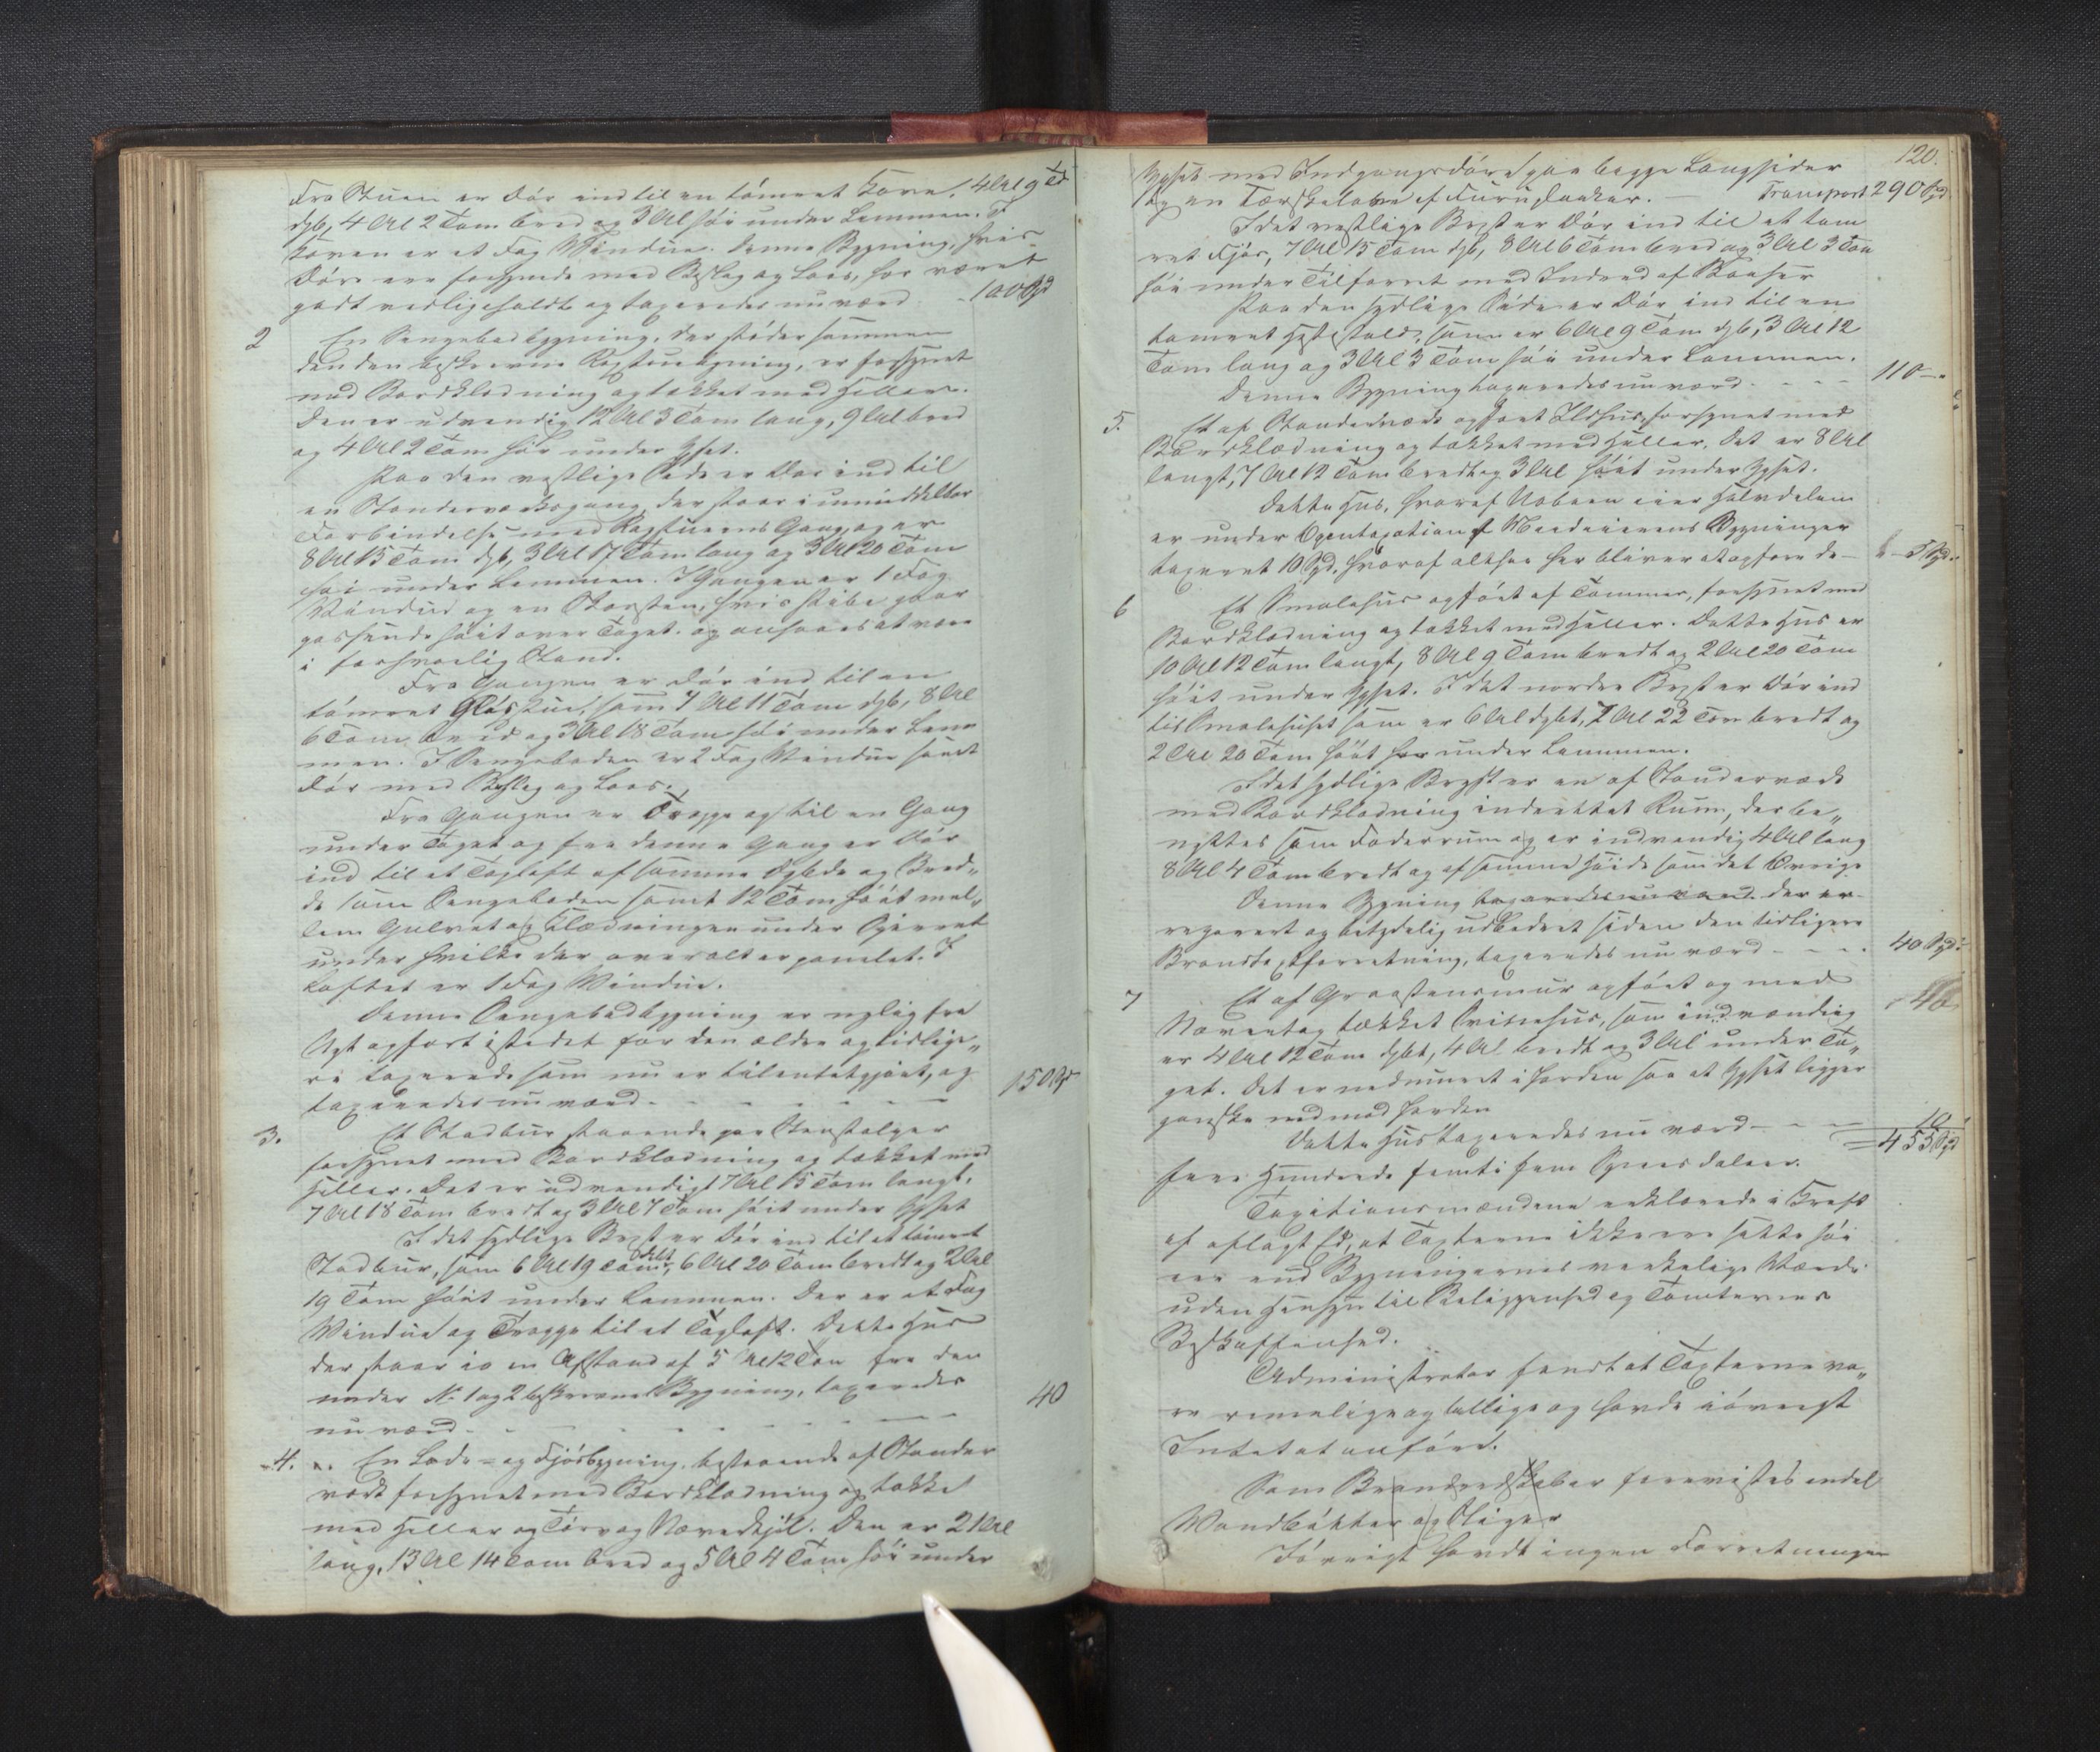 Fra Stuen er Dör ind til en tömret Kove, 4 Al 9 T
dyb, 4 Al 2 Tom bred og 3 Al höi under Lemmen. I
Koven er et Fag Vindue. Denne Bygning, hvis
Döre ere forsynede med Beslag og Laas, har været
godt vedligeholdt og taxeredes nu værd - 100 Spd
2 En Sengebodbygning, der stöder sammen
den beskrevne Røgstuebygning, er forsynet
med Bordklædning og tækket med Heller.
Den er udvendig 12 Al 3 Tom lang, 9 Al bred
og 4 Al 2 Tom höi under Gset.
Paa den vestlige Side er Dör ind til
en Standerværksgang, der staar i umiddelbar
Forbindelse med Røgstuens Gang, og er
8 Al 15 Tom dyb, 3 Al 17 Tom lang og 3 Al 20 Tom
höi under Lemmen. I Gangen er 1 Fag
Vindue og en Skorsten, hvis Pibe gaar
passende höit over Taget og ansaaes at være
i forsvarlig Stand.
Fra Gangen er Dör ind til en
tömret Glasstue, som 7 Al 11 Tom dyb, 8 Al
6 Tom bred og 3 Al 18 Tom höi under Lem
men. I Sengeboden er 2 Fag Vindue samt
Dör med Beslag og Laas.
Fra Gangen er Trappe op til en Gang
under Taget og fra denne Gang er Dör
ind til et Tagloft af samme Dybde og Bred„
de som Sengeboden samt 12 Tom höit mel„
lem Gulvet og Klædningen under Sperret
under hvilke der overalt er panelet. I
Loftet er 1 Fag Vindue.
Denne Sengebodbygning er nylig fra
Nyt opfört istedet for den ældre og tidlige„
re taxerede som nu er tilintetgjort, og
taxeredes nu værd - - - - - - - 150 Spd
3. Et Stabbur staaende paa Stenstolper
forsynet med Bordklædning og tækket med
Heller. Det er udvendigt 7 Al 15 Tom langt,
7 Al 18 Tom bredt og 3 Al 7 Tom höit under Gset
I det sydlige Bryst er Dör ind til et tömret
Stabbur, som 6 Al 19 Tom dybt, 6 Al 20 Tom bredt og 2 Al
19 Tom höit under Lemmen. Der er et Fag
Vindue og Trappe til et Tagloft. Dette Huus
der staar i en Afstand af 5 Al 12 Tom fra den
under No 1 og 2 beskrevne Bygning, taxeredes
nu værd - - - - - - - 40
4. En Lade- og Fjösbygning, bestaaende af Stander
værk forsynet med Bordklædning og tække
med Heller og Törv og Næverkjöl. Den er 21 Al
lang, 13 Al 14 Tom bred og 5 Al 4 Tom höi under
120.
Gset med Indgangsdöre paa begge Langsider
og en Tærskelove af Furuplanker. - Transport 290 Spd.
I det vestlige Bryst er Dör ind til et töm
ret Fjös, 7 Al 15 Tom dyb, 8 Al 6 Tom bred og 3 Al 3 Tom
höi under Tilfaret med Indred af Baaser
Paa den sydlige Side er Dör ind til en
tömret Hestestald, som er 6 Al 9 Tom dyb, 3 Al 12
Tom lang og 3 Al 3 Tom höi under Lemmen.
Denne Bygning taxeredes nu værd - - - - 110 -
5. Et af Standerværk opfört Ildhus, forsynet med
Bordklædning og tækket med Heller. Det er 8 Al
langt, 7 Al 12 Tom bredt og 3 Al höit under Gset.
Dette Hus, hvoraf Naboen eier Halvdelen
er under Omtaxation af Medeierens Bygninger
taxeret 10 Spd. hvoraf altsaa her bliver at opföre de - 5 Spd.
6 Et Smalehus opfört af Tömmer, forsynet med
Bordklædning og tækket med Heller. Dette Hus er
10 Al 12 Tom langt, 8 Al 9 Tom bredt og 2 Al 20 Tom
höit under Gset. I det nordre Bryst er Dör ind
til Smalehuset som er 6 Al dybt, 7 Al 22 Tom bredt og
2 Al 20 Tom höit under Lemmen.
I det sydlige Bryst er en af Standerværk
med Bordklædning indrettet Rum, der be„
nyttes som Foderrum og er indvendig 4 Al lang
8 Al 4 Tom bredt og af samme Höide som det Övrige
Denne Bygning taxeredes nu værd der er
repareret og betydelig udbedret siden den tidligere
Brandtaxtforretning, taxeredes nu værd - - - - 40 Spd:
7 Et af Graastensmur opfört og med 40
Nævertag tækket hus, som indvendig
er 4 Al 12 Tom dybt, 4 Al bredt og 3 Al under Ta„
get. Det er nedmuret i Jorden saa at Gset ligger
ganske ned mod Jorden
Dette Hus taxeredes nu værd - - - 10
= 455 Spd
fire Hundrede femti fem Speciesdaler.
Taxationsmændene erklærede i Kraft
af aflagt Ed, at Taxterne ikke ere satte höi
ere end Bygningernes virkelige Værd
uden Hensyn til Beliggenhed og Tomternes
Beskaffenhed.
Administrator fandt at Taxterne va„
re rimelige og billige og havde iövrigt
Intet at anföre.
Som Brandredskaber forevistes endel
Vandbötter og Stiger
Iövrigt havde ingen Forretningen